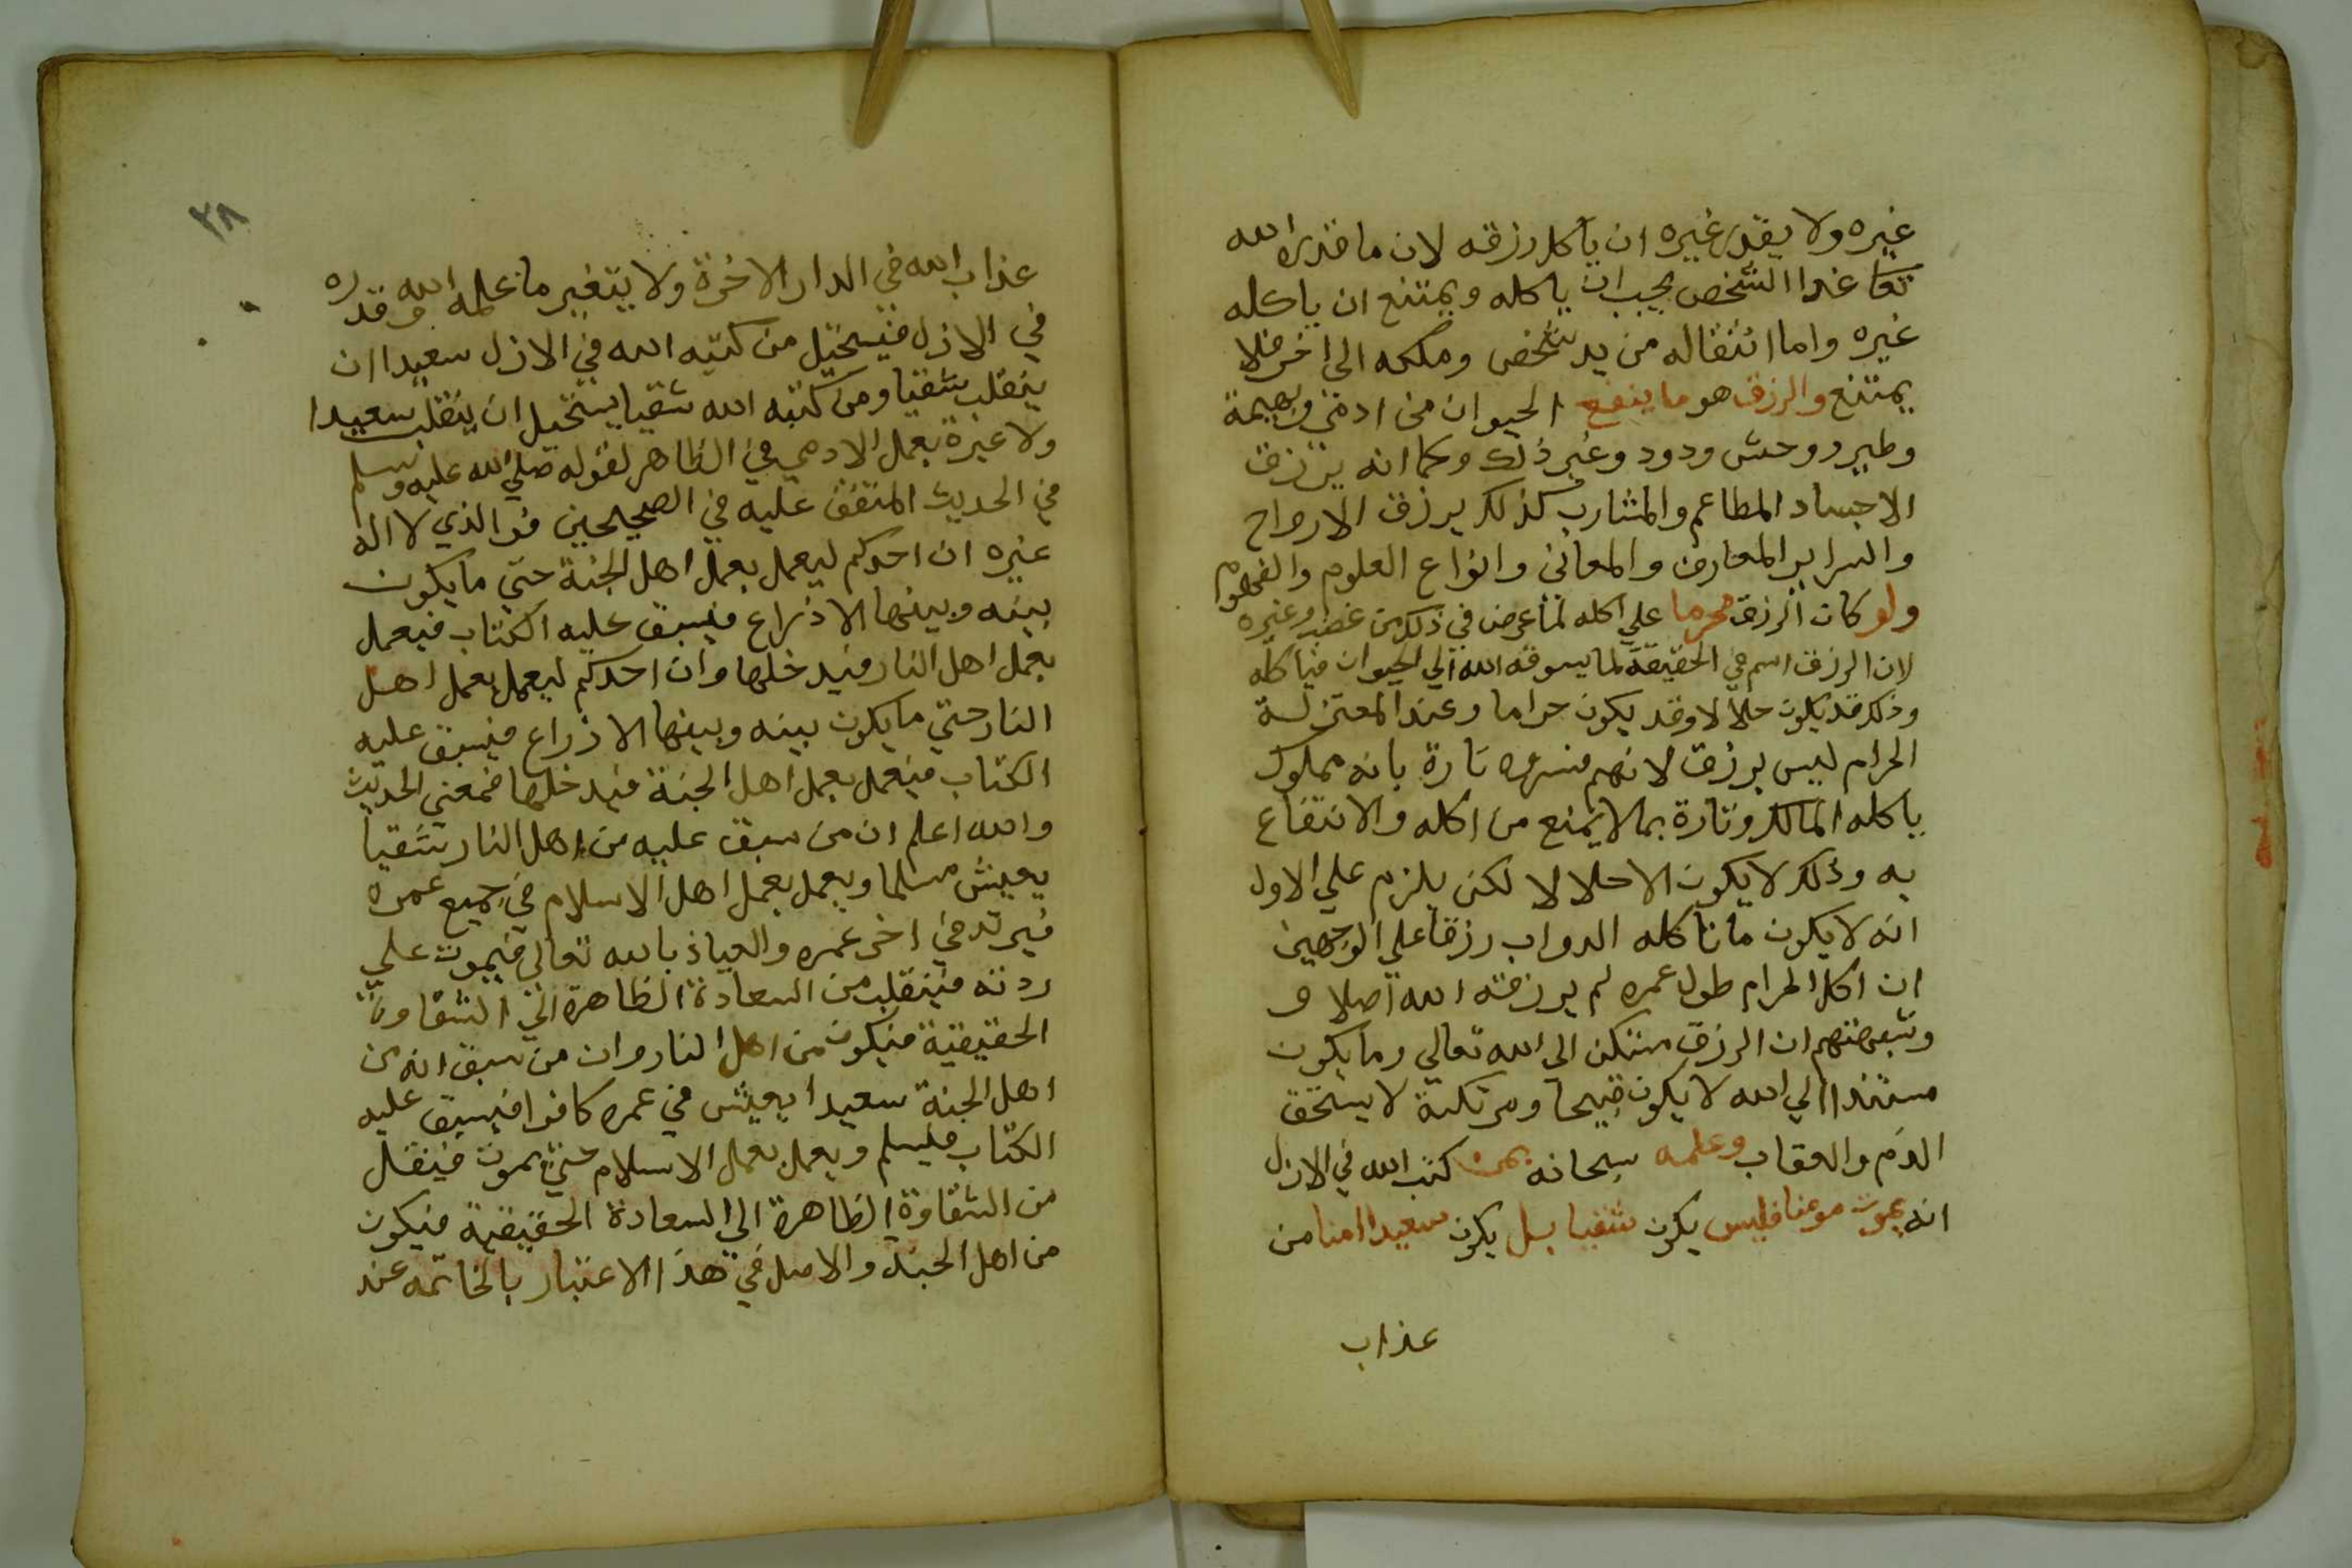 غيره ولا يقدر غيره ان ياكل رزقه لان ما قدره الله
تعا غذا الشخص يجب ان ياكله ويمتنع ان ياكله
غيره واما انتقاله من يد شخص وملكه الى اخر فلا
يمتنع والرزق هو ما ينفع الحيوان من ادمي وبهيمة
وطير ووحش ودود وغير ذلك وكما انه يرزق
الاجساد المطاعم والمشارب كذلك يرزق الارواح
والسراير المعارف والمعاني وانواع العلوم والفهوم
ولو كان الرزق محرما علي اكله لما عرض في ذلك من غصب وغيره
لان الرزق اسم في الحقيقة لما يسوقه الله الي الحيوان فياكله
وذلك قد يكون حلالا وقد يكون حراما وعند المعتزلة
الحرام ليس برزق لانهم فسروه تارة بانه مملوك
ياكله المالك وتارة بما لا يمنع من اكله والانتفاع
به وذلك لا يكون الا حلالا لكن يلزم علي الاول
انه لا يكون ما تاكله الدواب رزقا علي الوجهين
ان اكل الحرام طول عمره لم يرزقه الله اصلا و
ان الرزق الي الله تعالي وما يكون
مستندا الي الله لا يكون قبيحا ومرتكبه لا يستحق
الذم والعقاب وعلمه سبحانه بمن كتب الله في الازل
انه يموت مومنا فليس يكون شقيا بل يكون سعيدا امنا من
عذاب
٣٨
عذاب الله في الدار الاخرة ولا يتغير ما علمه الله وقدره
في الازل فيستحيل من كتبه الله في الازل سعيدا ان
ينقلب شقيا ومن كتبه الله شقيا يستحيل ان ينقلب سعيدا
ولا عبرة بعمل الادمي في الظاهر لقوله صلي الله عليه وسلم
في الحديث المتفق عليه في الصحيحين فوالذي لا اله
غيره ان احدكم ليعمل بعمل اهل الجنة حتي ما يكون
بينه وبينها الا ذراع فيسبق عليه الكتاب فيعمل
بعمل اهل النار فيدخلها وان احدكم ليعمل بعمل اهل
النار حتي ما يكون بينه وبينها الا ذراع فيسبق عليه
الكتاب فيعمل بعمل اهل الجنة فيدخلها فمعني الحديث
والله اعلم ان من سبق عليه من اهل النار شقيا
يعيش مسلما ويعمل بعمل اهل الاسلام في جميع عمره
فيرتد في اخر عمره والعياذ بالله تعالي فيموت علي
ردته فينقلب من السعادة الظاهرة الي الشقاوة
الحقيقية فيكون من اهل النار وان من سبق انه من
اهل الجنة سعيدا يعيش في عمره كافرا فيسبق عليه
الكتاب فيسلم ويعمل بعمل الاسلام حتي يموت فينقل
من الشقاوة الظاهرة الي السعادة الحقيقية فيكون
من اهل الجنة والاصل في هذا الاعتبار بالخاتمه عند